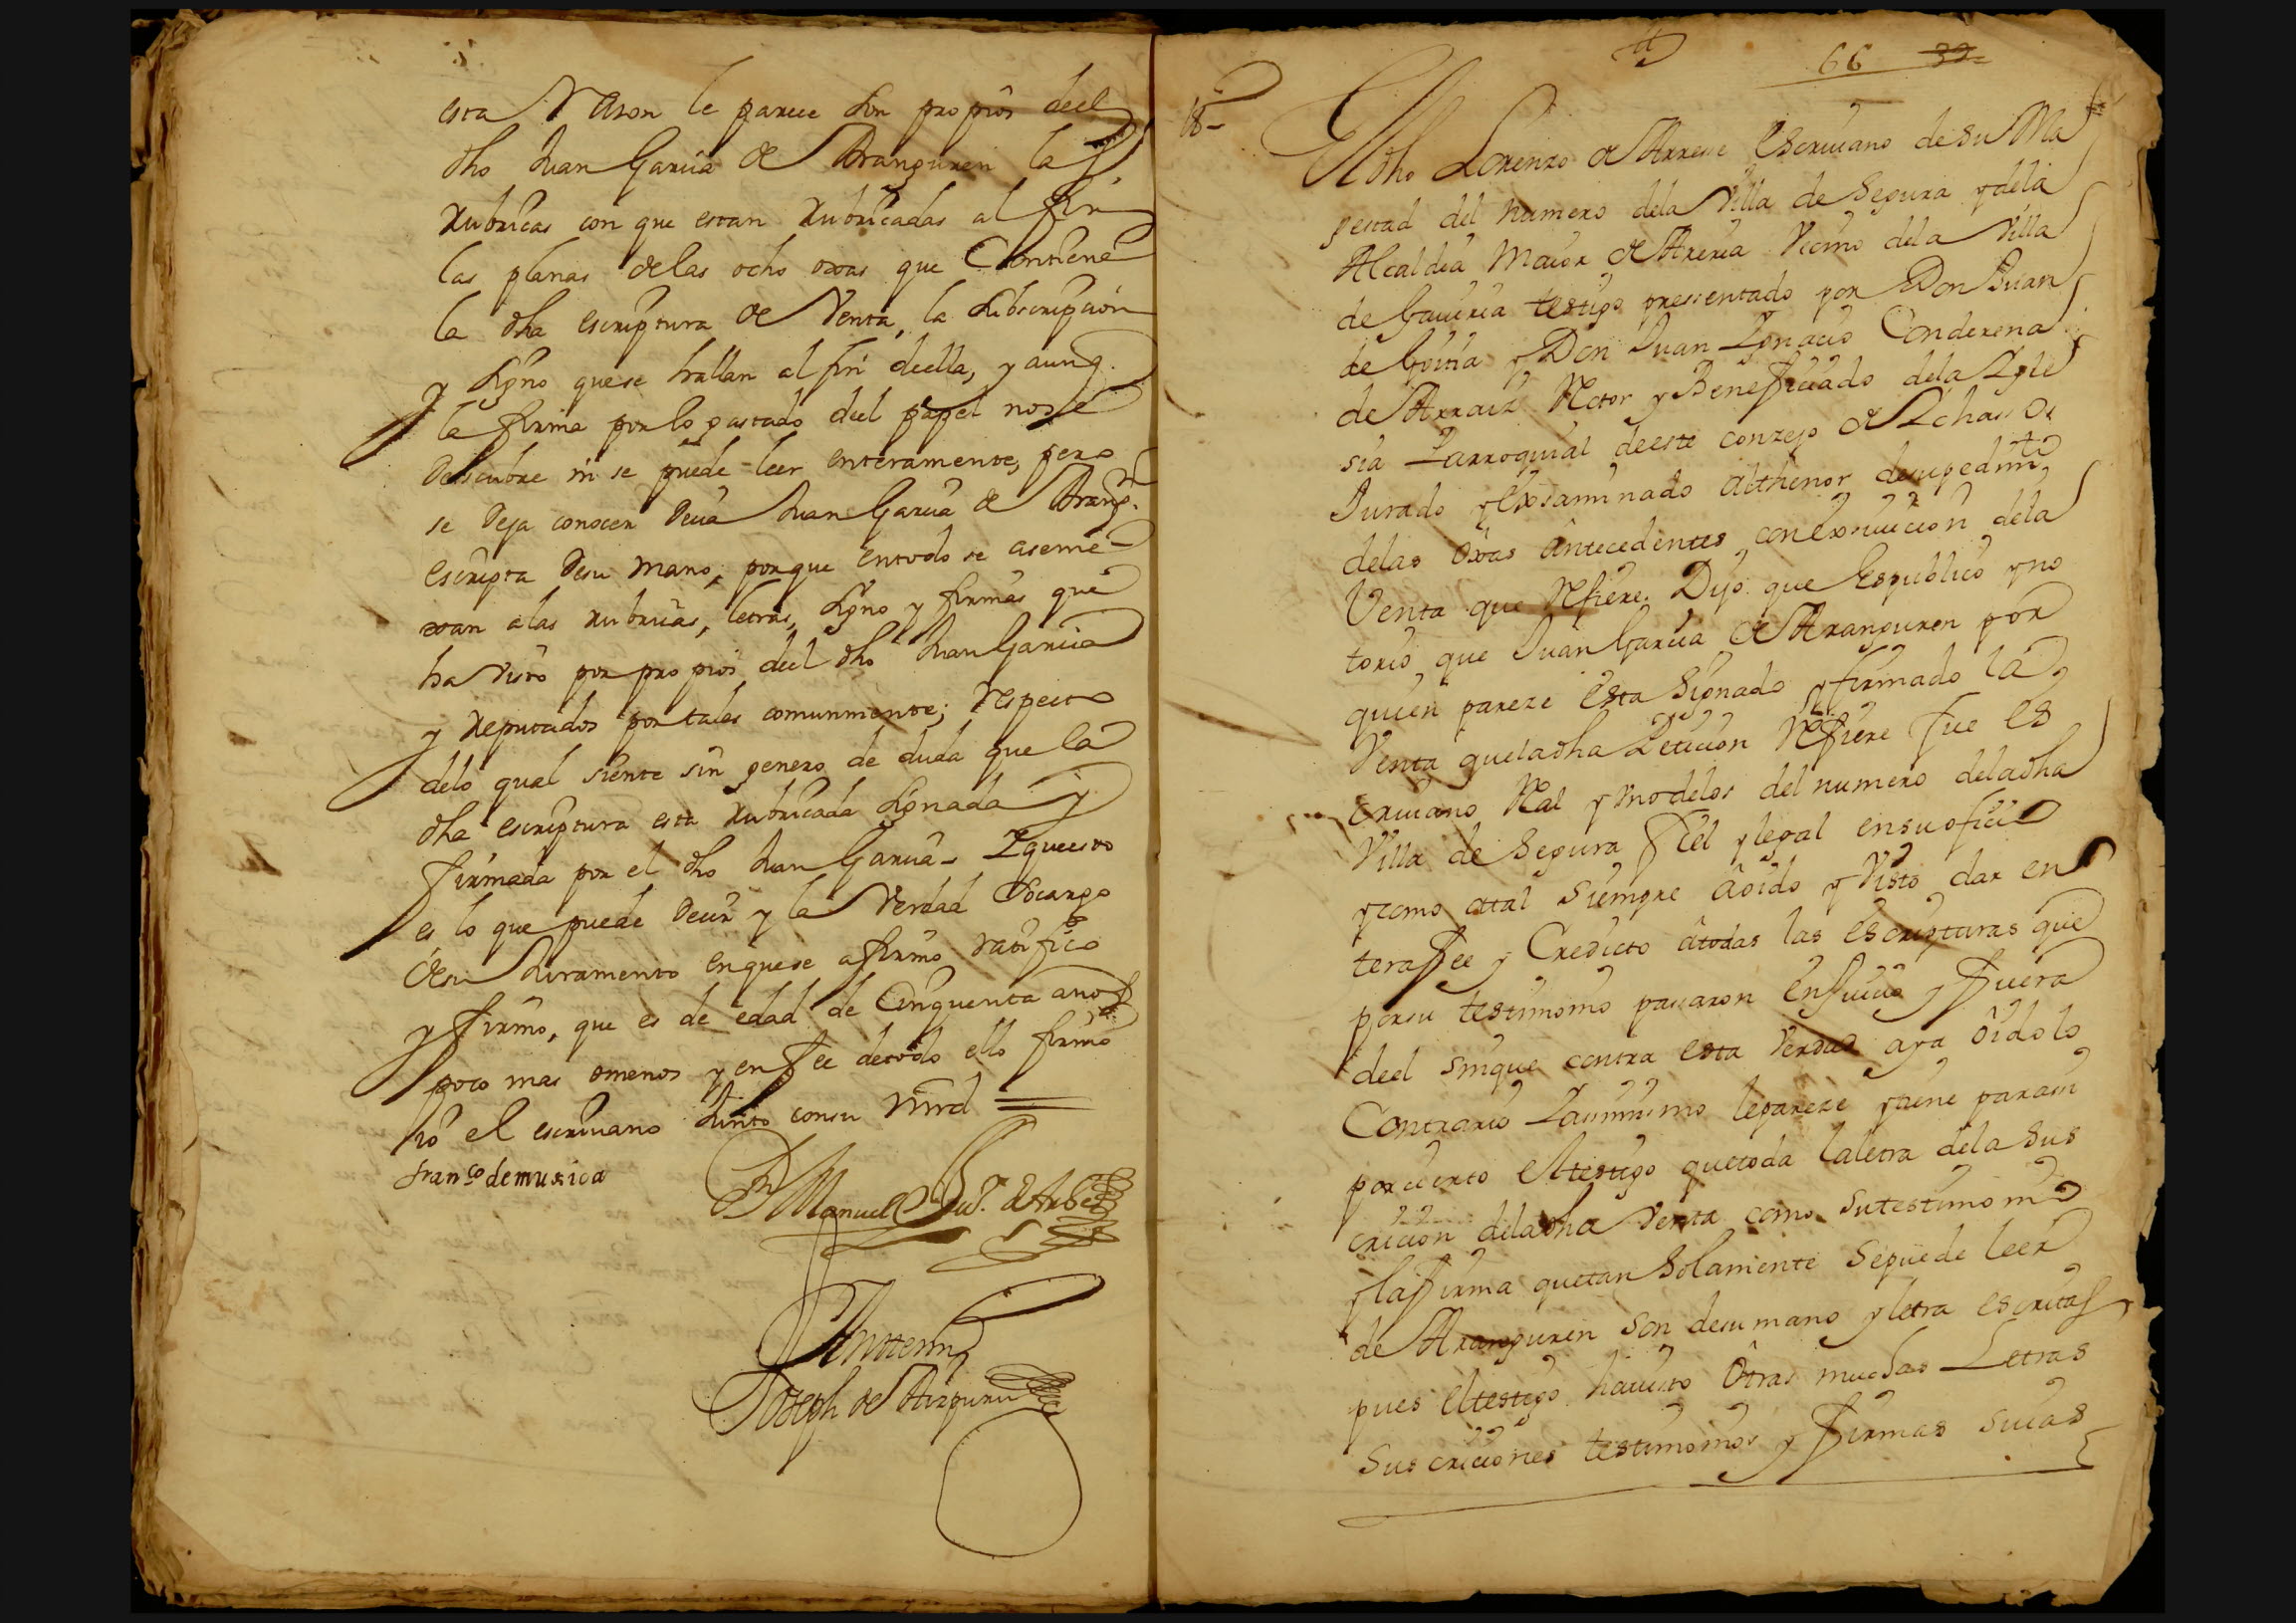 esta Rason le parece son propios deel
dho Juan Garcia de Aranguren las
rubricas con que estan rubricadas al fin
las planas de las ocho oxas que Contiene
la dha escriptura de Venta, la subscripcion
y signo que se hallan al fin de ella, y aunq.
la firma por lo gastado del papel no se
descubre ni se puede leer enteramente, pero
se deja conocer decia Juan Garcia de Arang.n
escripta de su mano, porque en todo se aseme
xan a las rubricas, letras, signo y firmas que
ha visto por propios del dho Juan Garcia
y reputados por tales comunmente; respecto
de lo qual siente sin genero de duda que la
dha escriptura esta rubricada signada y
firmada por el dho Juan Garcia. Y que esto
es lo que puede decir y la Verdad so cargo
de su Juramento en que se afirmo ratifico
y firmo, que es de edad de Cinquenta años
poco mas omenos y en fee de todo ello firmo
io el escrivano Junto con su Mrd
Fran.co de musica
D Manuel
Ante mi
Joseph de Aizpuru
66 39
18
El dho Lorenzo de Arrese Escrivano de su Ma
gestad del numero dela Villa de Segura y dela
Alcaldia Maior de Areria Vecino dela Villa
de Gaviria testigo pressentado por Don Juan
de Goitia y Don Juan Ignacio Conderena
de Arraiz Retor y Beneficiado dela Igle
sia Parroquial deeste conzejo de Ichasso
Jurado y Exsaminado althenor desupedimto
delas oxas antecedentes con exsivicion dela
Venta que Refiere. Dijo que Espublico y no
torio que Juan Garcia de Aranguren por
quien pareze Esta Signado y firmado la
Venta queladha Peticion Refiere fue Es
crivano Real y uno delos del numero deladha
Villa de Segura fiel y legal ensu ofiçio
y como atal siempre âoido y Visto dar en
tera fee y Credicto âtodas las escripturas que
porsu testimonio passaron En Juicio y fuera
deel sinque contra esta Verdad aya ôido lo
Contrario Y assimismo lepareze y tiene parasi
porcierto Eltestigo quetoda laletra dela sus
cricion deladha Venta como sutestimonio
y lafirma quetan Solamente Sepuede leer
de Aranguren son desu mano y letra escritas
pues Eltestigo havisto Ôtras muchas Letras
Suscriciones testimonios y firmas suias